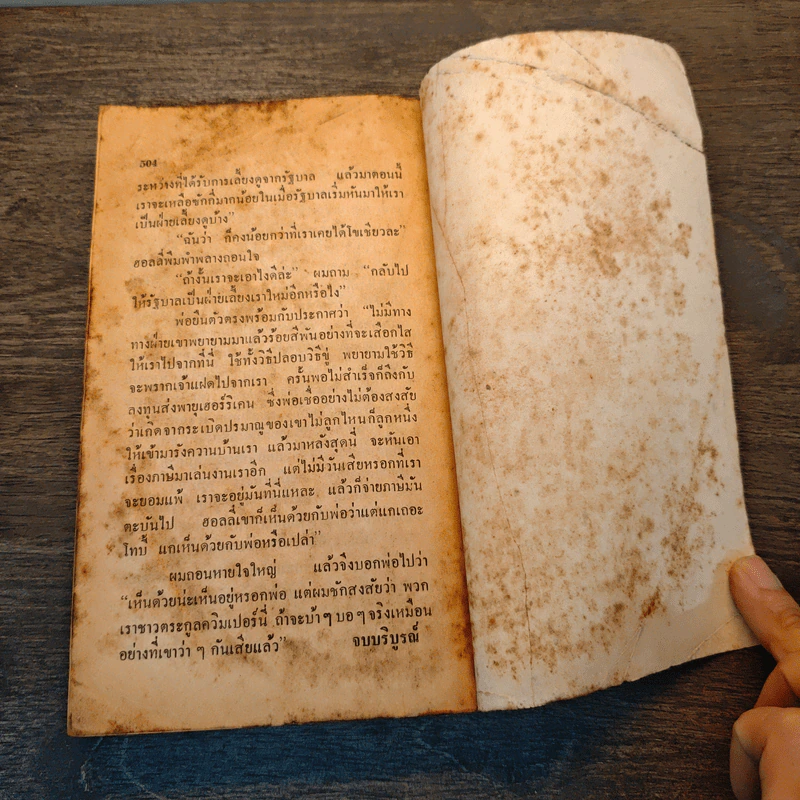 504
ระหว่างที่ได้รับการเลี้ยงดูจากรัฐบาล แล้วมาตอนนี้
เราจะเหลือซักกี่มากน้อยในเมื่อรัฐบาลเริ่มหันมาให้เรา
เป็นฝ่ายเลี้ยงดูบ้าง”
“ฉันว่า ก็คงน้อยกว่าที่เราเคยได้โขเชียวละ”
ฮอลลี่พึมพำพลางถอนใจ
“ถ้างั้นเราจะเอาไงดีล่ะ” ผมถาม “กลับไป
ให้รัฐบาลเป็นฝ่ายเลี้ยงเราใหม่อีกหรือไง”
พ่อยืนตัวตรงพร้อมกับประกาศว่า “ไม่มีทาง
ทางฝ่ายเขาพยายามมาแล้วร้อยสีพันอย่างที่จะเสือกไส
ให้เราไปจากที่นี่ ใช้ทั้งวิธีปลอบวิธีขู่ พยายามใช้วิธี
จะพรากเจ้าแฝดไปจากเรา ครั้นพอไม่สำเร็จก็ถึงกับ
ลงทุนส่งพายุเฮอร์ริเคน ซึ่งพ่อเชื่ออย่างไม่ต้องสงสัย
ว่าเกิดจากระเบิดปรมาณูของเขาไม่ลูกไหนก็ลูกหนึ่ง
ให้เข้ามารังควานบ้านเรา แล้วมาหลังสุดนี้ จะหันเอา
เรื่องภาษีมาเล่นงานเราอีก แต่ไม่มีวันเสียหรอกที่เรา
จะยอมแพ้ เราจะอยู่มันที่นี่แหละ แล้วก็จ่ายภาษีมัน
ตะบันไป ฮอลลี่เขาก็เห็นด้วยกับพ่อว่าแต่แกเถอะ
โทบี้ แกเห็นด้วยกับพ่อหรือเปล่า”
ผมถอนหายใจใหญ่ แล้วจึงบอกพ่อไปว่า
“เห็นด้วยน่ะเห็นอยู่หรอกพ่อ แต่ผมชักสงสัยว่า พวก
เราชาวตระกูลควิมเปอร์นี่ ถ้าจะบ้า ๆ บอ ๆ จริงเหมือน
อย่างที่เขาว่า ๆ กันเสียแล้ว” จบบริบูรณ์